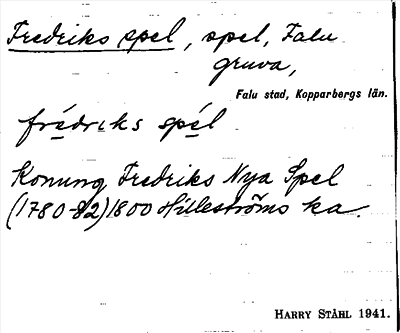 Fredriks spel, spel, Falu
gruva,
Falu stad, Kopparbergs län.
frédriks spél
Konung Fredriks Nya Spel
(1780-82) 1800 Hilleströms ka.
HARRY STÅHL 1941.